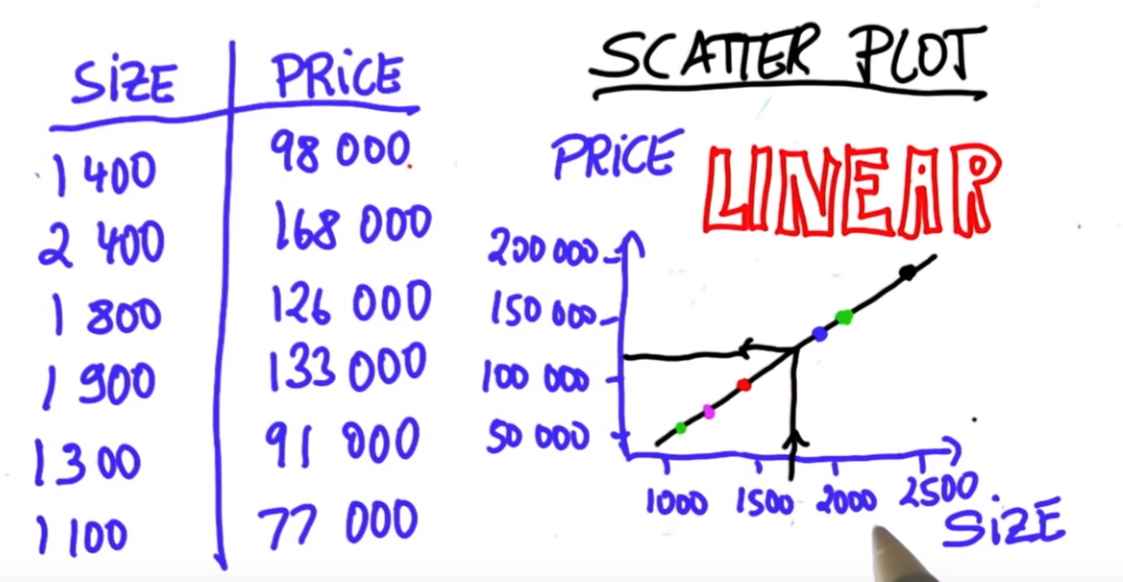 SIZE PRICE
1 400 98 000
2 400 168 000
1 800 126 000
1 900 133 000
1 300 91 000
1 100 77 000
SCATTER PLOT
PRICE LINEAR
200 000
150 000
100 000
50 000
1000 1500 2000 2500
SIZE